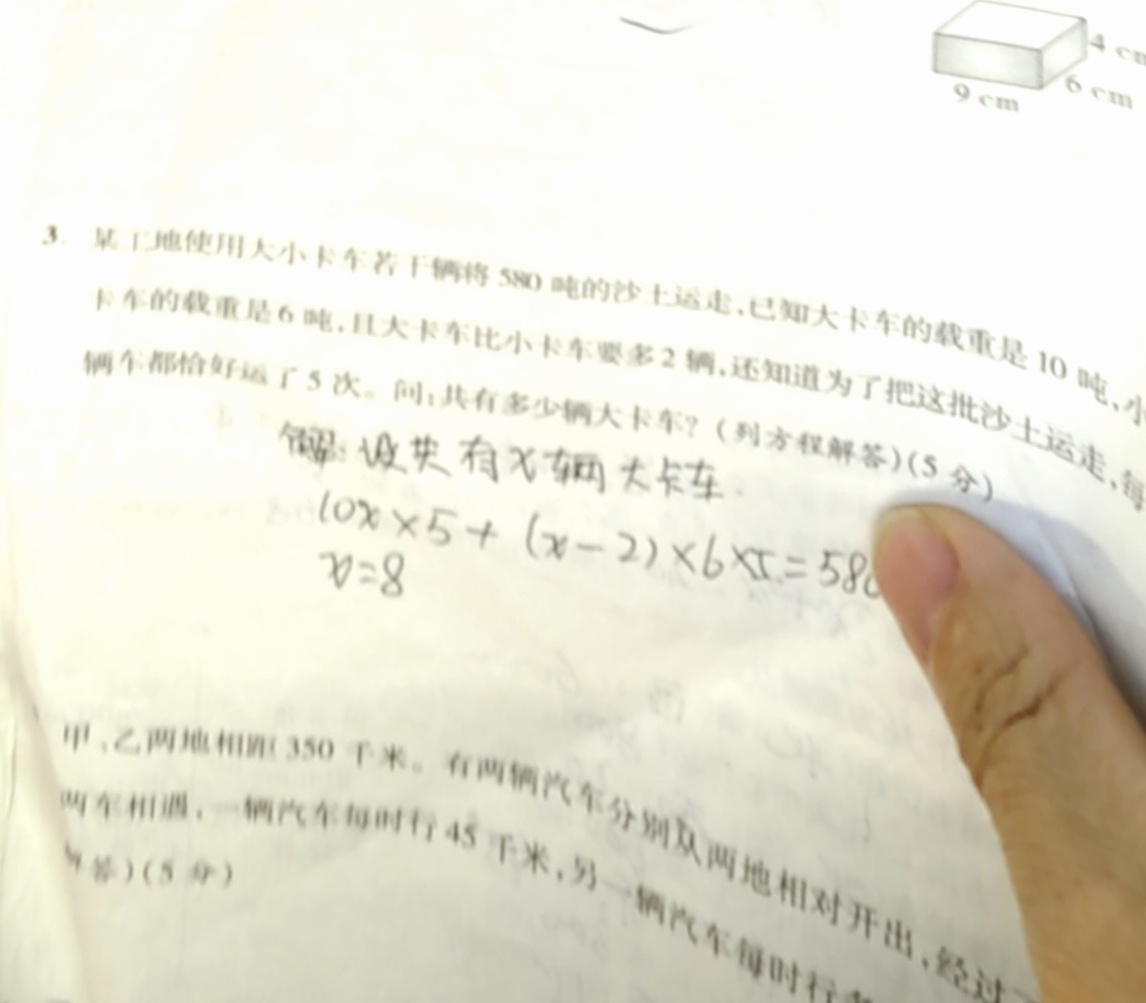 4 cm
6 cm
9 cm
3. 某工地使用大小卡车若干辆将 580 吨的沙土运走,已知大卡车的载重是 10 吨,小
卡车的载重是 6 吨,且大卡车比小卡车要多 2 辆,还知道为了把这批沙土运走,每
辆车都恰好运了 5 次。问:共有多少辆大卡车?(列方程解答)(5 分)
解:设共有x辆大卡车.
10x×5+(x-2)×6×5=580
x=8
甲、乙两地相距 350 千米。有两辆汽车分别从两地相对开出,经过
两车相遇,一辆汽车每时行 45 千米,另一辆汽车每时行
答)(5 分)